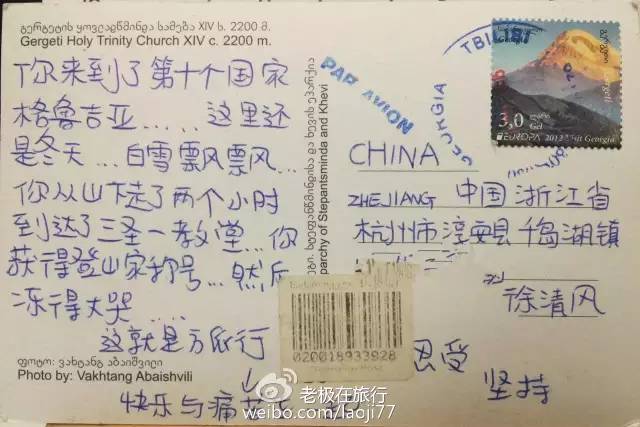 გერგეტის ყოვლადწმინდა სამება XIV ს. 2200 მ.
Gergeti Holy Trinity Church XIV c. 2200 m.
你来到了第十个国家
格鲁吉亚..... 这里还
是冬天... 白雪飘飘风...
你从山下走了两个小时
到达了三圣一教堂...你
获得登山家称号...然后
冻得大哭...
这就是
旅行
忍受
快乐与痛苦
坚持
ფოტო: ვახტანგ აბაიშვილი
Photo by: Vakhtang Abaishvili
სტეფანწმინდისა და ხევის ეპარქია
parchy of Stepantsminda and Khevi
PAR AVION
TBILISI
GEORGIA
3,0
ლარი
Gel
EUROPA 2012 Visit Georgia
CHINA
ZHEJIANG 中国浙江省
杭州市淳安县千岛湖镇
徐清风
020018933928
老极在旅行
weibo.com/laoji77